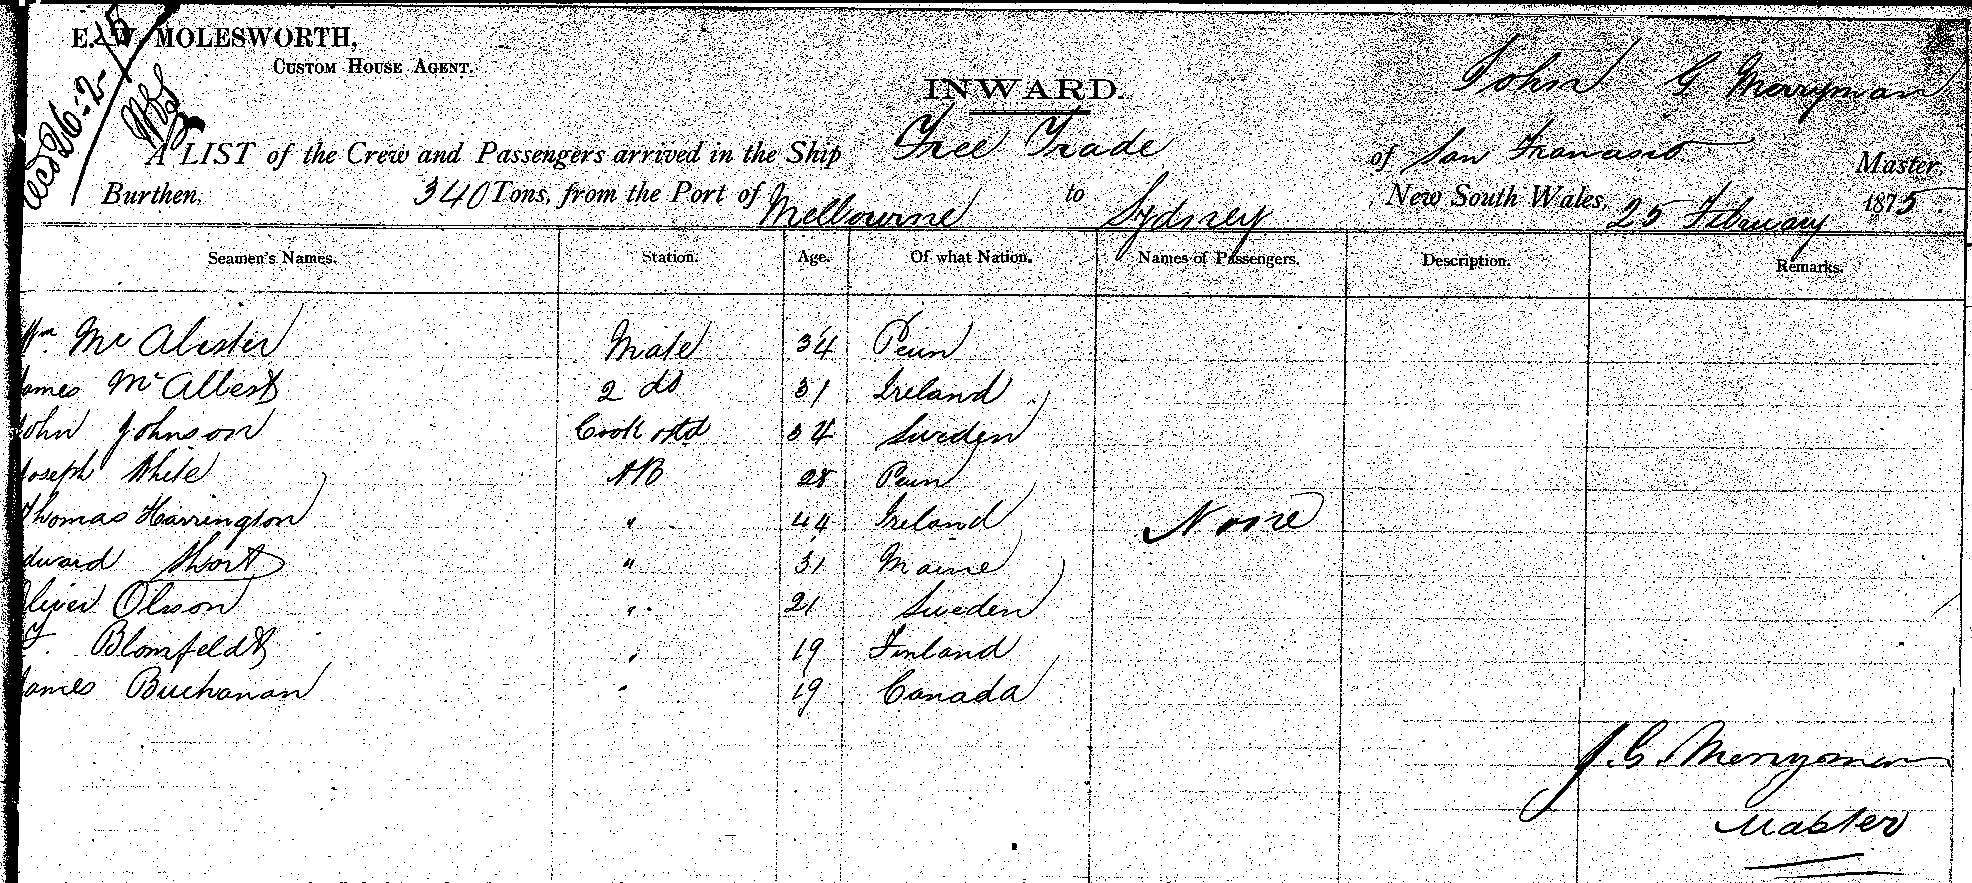 E. W. MOLESWORTH,
CUSTOM HOUSE AGENT.
Recd 26-2-75
INWARD.
John G Merryman
A LIST of the Crew and Passengers arrived in the Ship Free Trade of San Francisco Master,
Burthen, 340 Tons, from the Port of Melbourne to Sydney New South Wales, 25 February 1875
Seamen's Names. Station. Age. Of what Nation. Names of Passengers. Description. Remarks.
Wm Mc Alister Mate 34 Penn
James Mc Albert 2 do 31 Ireland
John Johnson Cook & Std 34 Sweden
Joseph White AB 28 Penn
Thomas Harrington " 44 Ireland None
Edward Short " 31 Maine
Oliver Olsson " 21 Sweden
F. Blomfeldt " 19 Finland
James Buchanan " 19 Canada
J. G. Merryman
Master